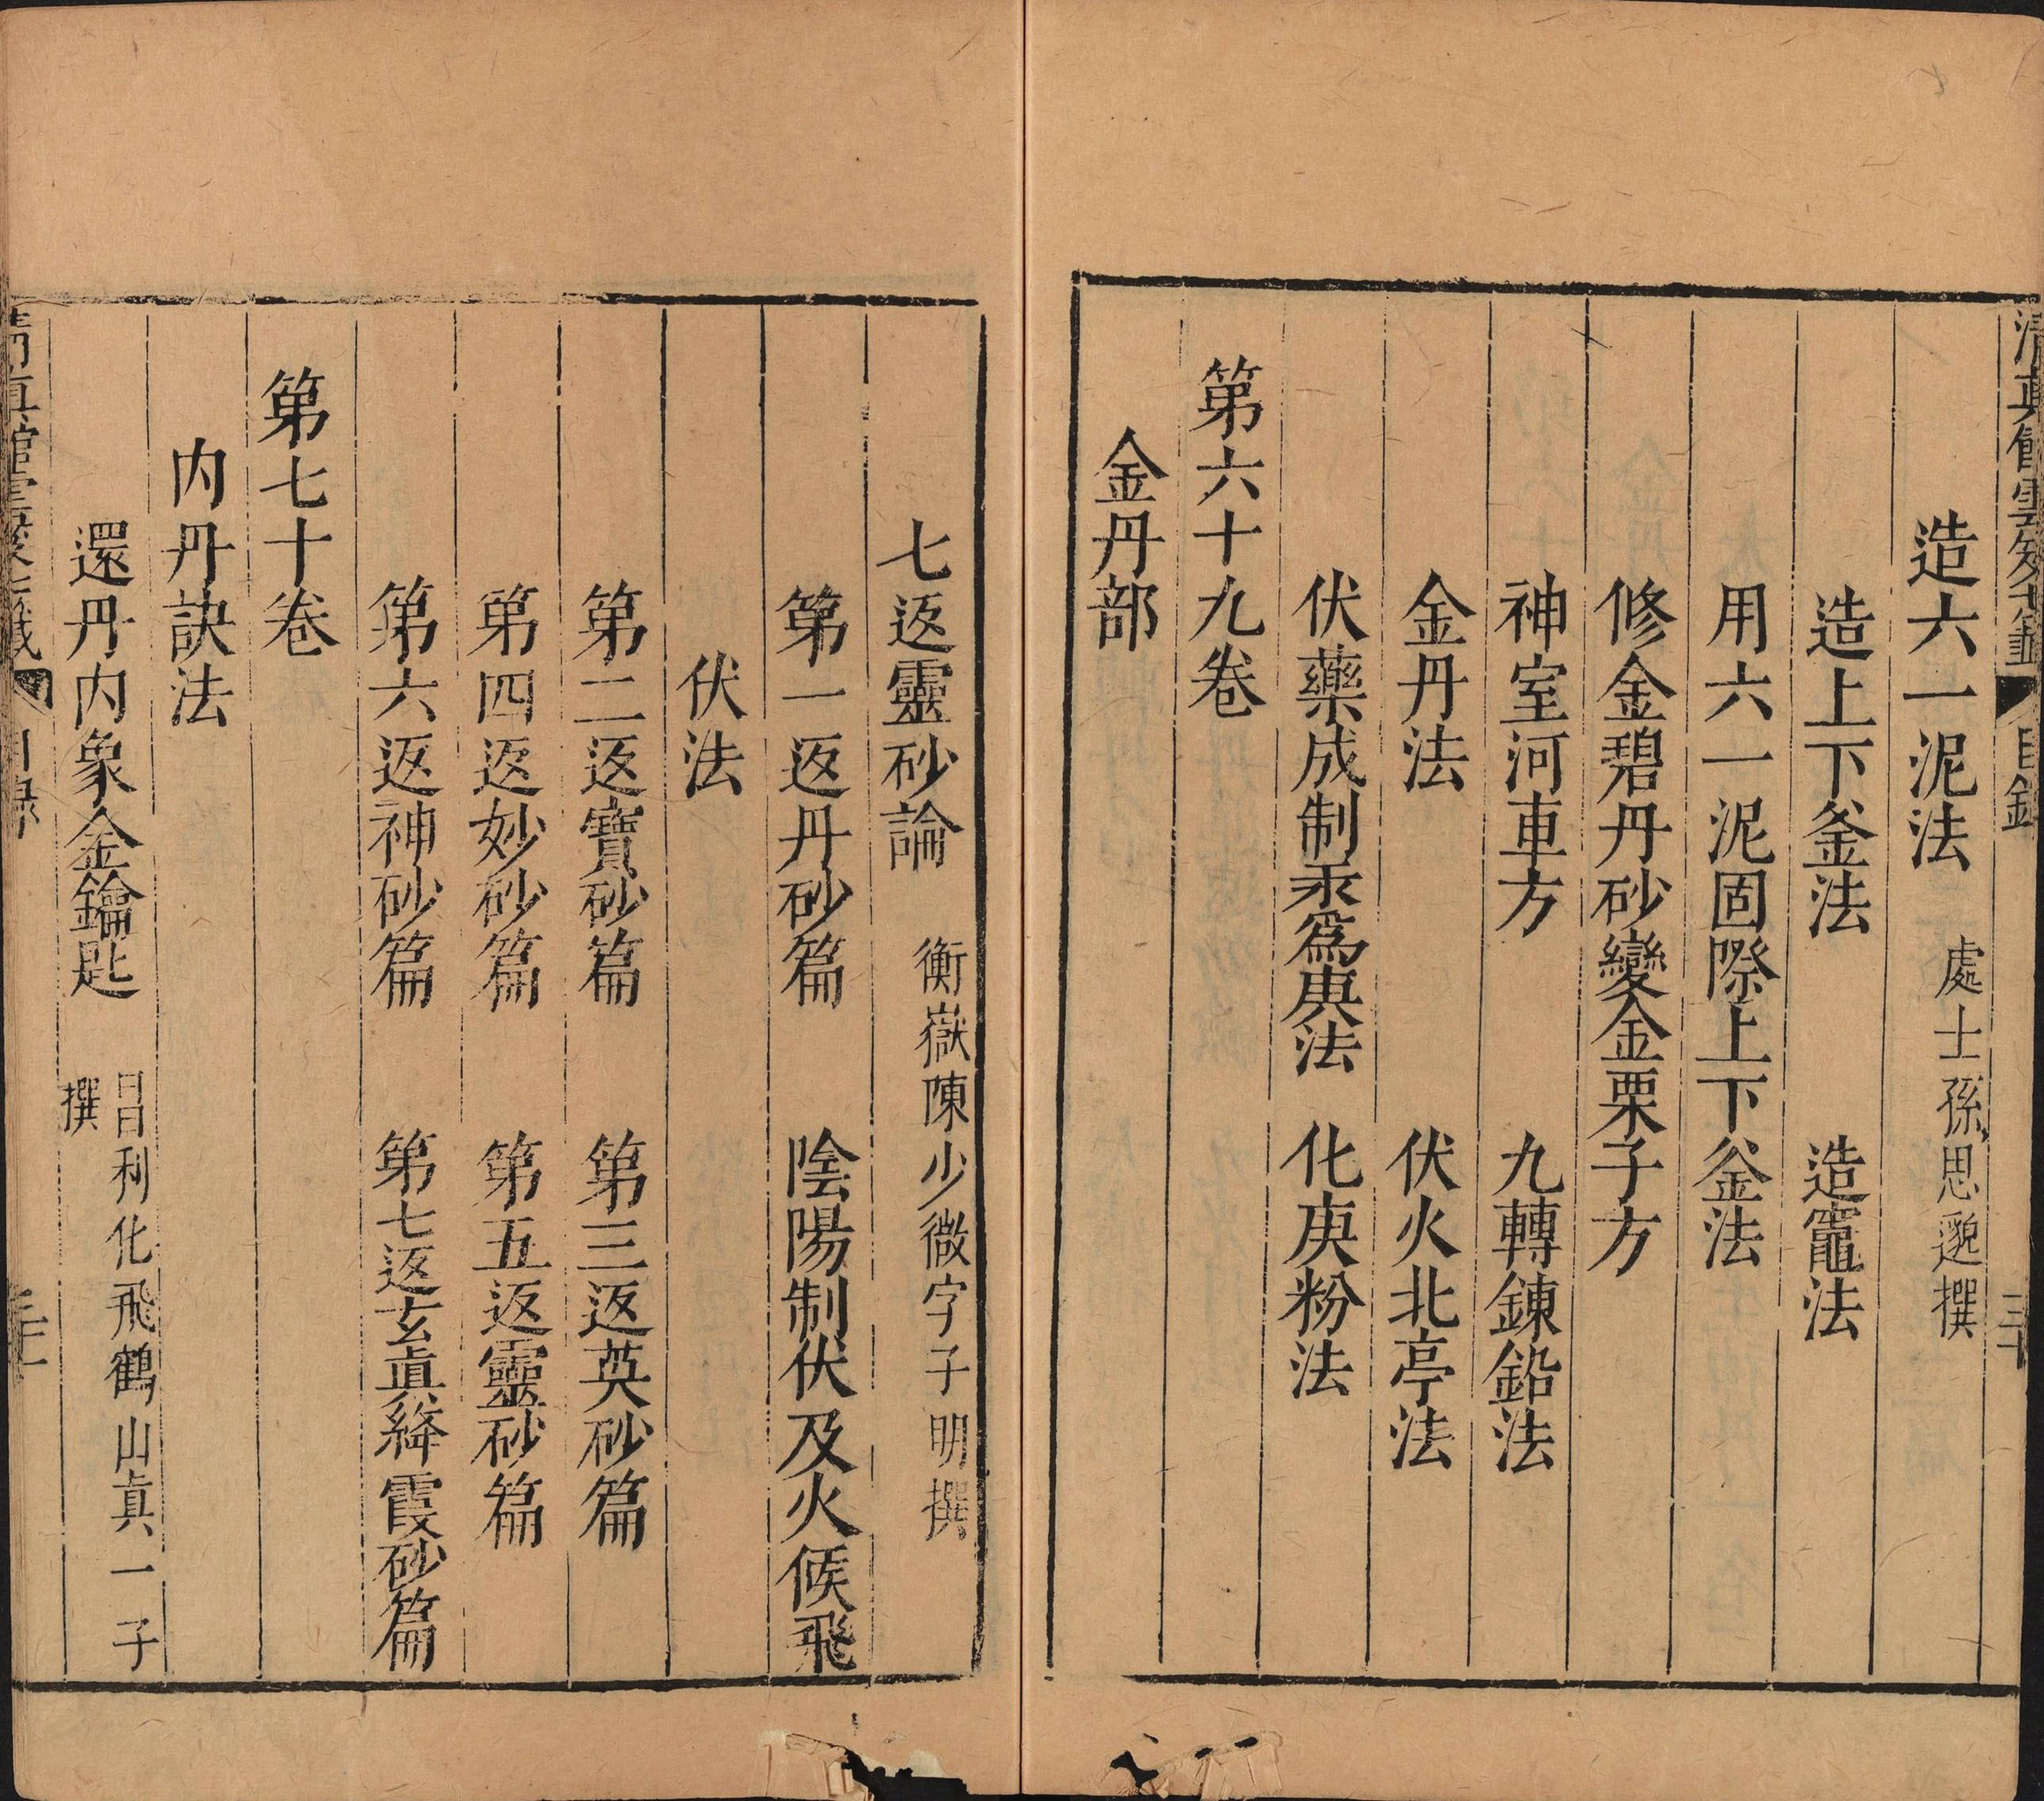 清真館雲笈七籤 目錄 三十
造六一泥法 處士孫思邈撰
造上下釜法 造竈法
用六一泥固際上下釜法
修金碧丹砂變金粟子方
神室河車方 九轉鍊鉛法
金丹法 伏火北亭法
伏藥成制汞爲庚法 化庚粉法
第六十九卷
金丹部
七返靈砂論 衡嶽陳少微字子明撰
第一返丹砂篇 陰陽制伏及火候飛
伏法
第二返寶砂篇 第三返英砂篇
第四返妙砂篇 第五返靈砂篇
第六返神砂篇 第七返玄眞絳霞砂篇
第七十卷
内丹訣法
還丹内象金鑰匙 昌利化飛鶴山眞一子撰
清真館雲笈七籤 目錄